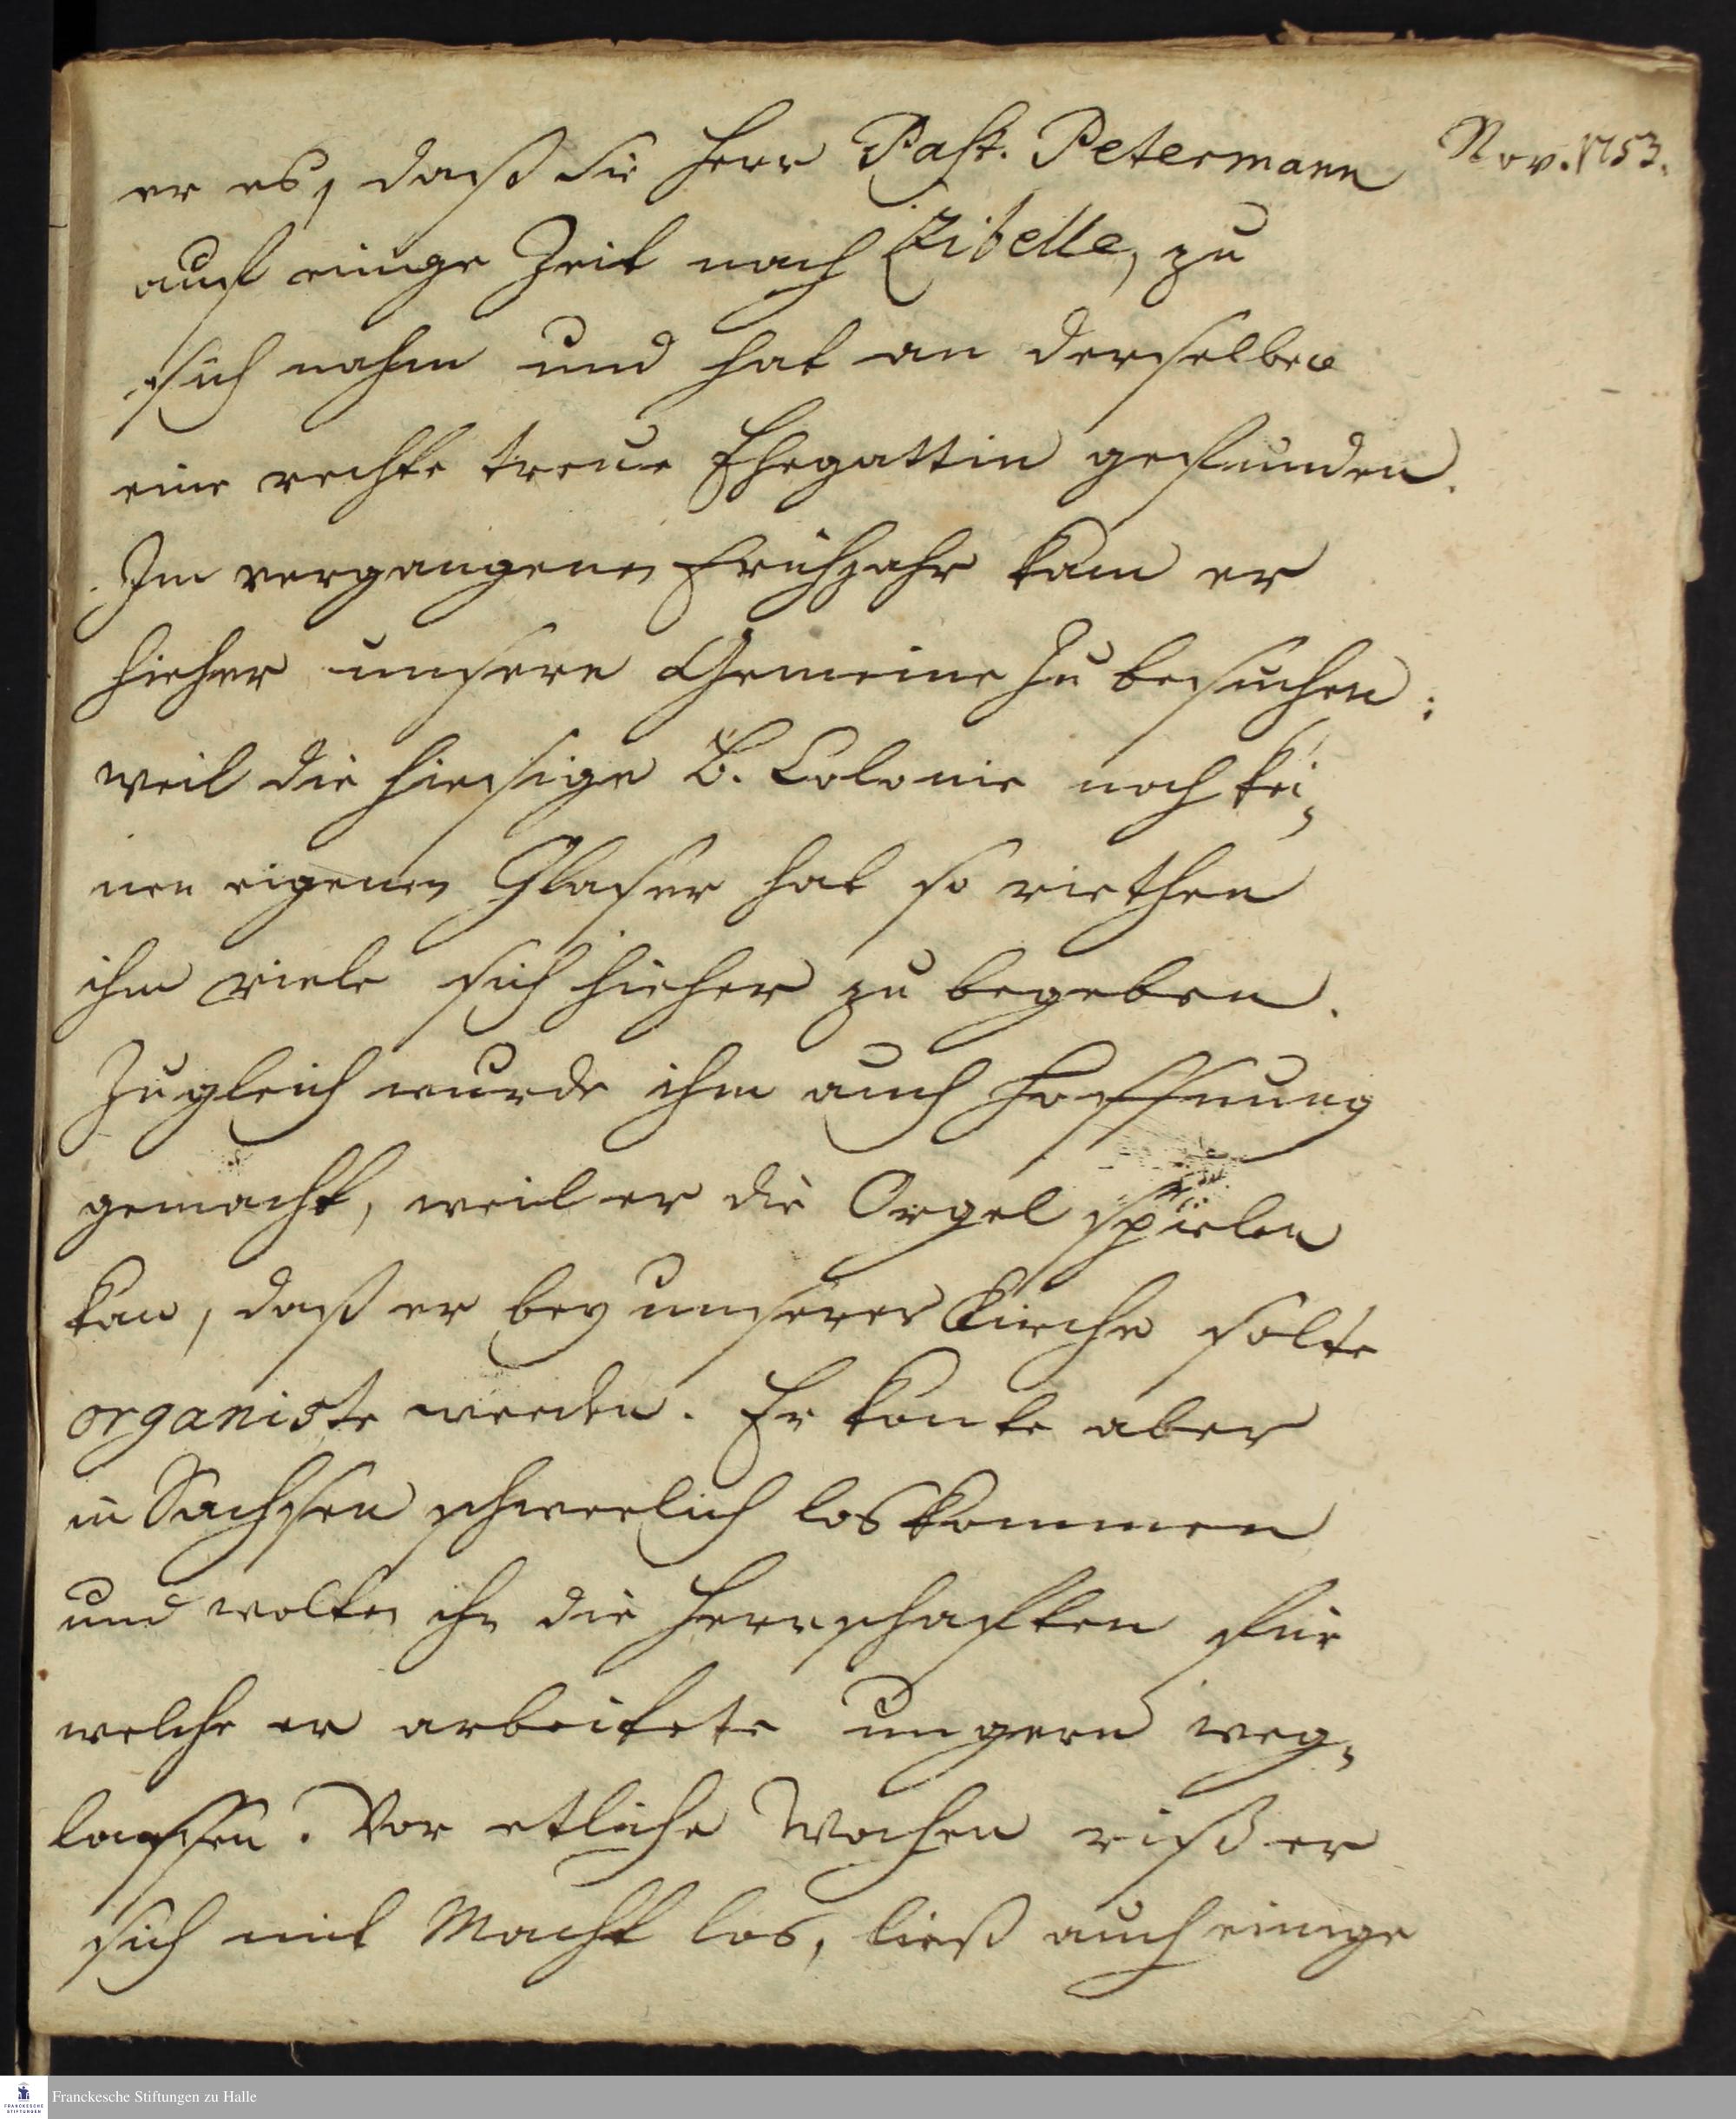 er es, daß sie Herr Past. Petermann
Nov. 1753.
auf einige Zeit nach Zibelle, zu
sich nahm und hat an derselben
eine rechte treue Ehegattin gefunden.
Im vergangenen Frühjahr kam er
hieher unsere Gemeine zu besuchen:
weil die hiesige B. Colonie noch kei-
nen eigenen Glaser hat so riethen
ihm viele sich hieher zu begeben.
Zugleich wurde ihm auch Hoffnung
gemacht, weil er die Orgel spielen
kan, daß er bey unserer Kirche solte
organiste werden. Er konte aber
in Sachsen schwerlich loskommen
und wolten ihn die Herrschafften für
welche er arbeitete ungern weg-
lassen. Vor etliche Wochen riß er
sich mit Macht los, ließ auch einige
Franckesche Stiftungen zu Halle
FRANCKESCHE
STIFTUNGEN